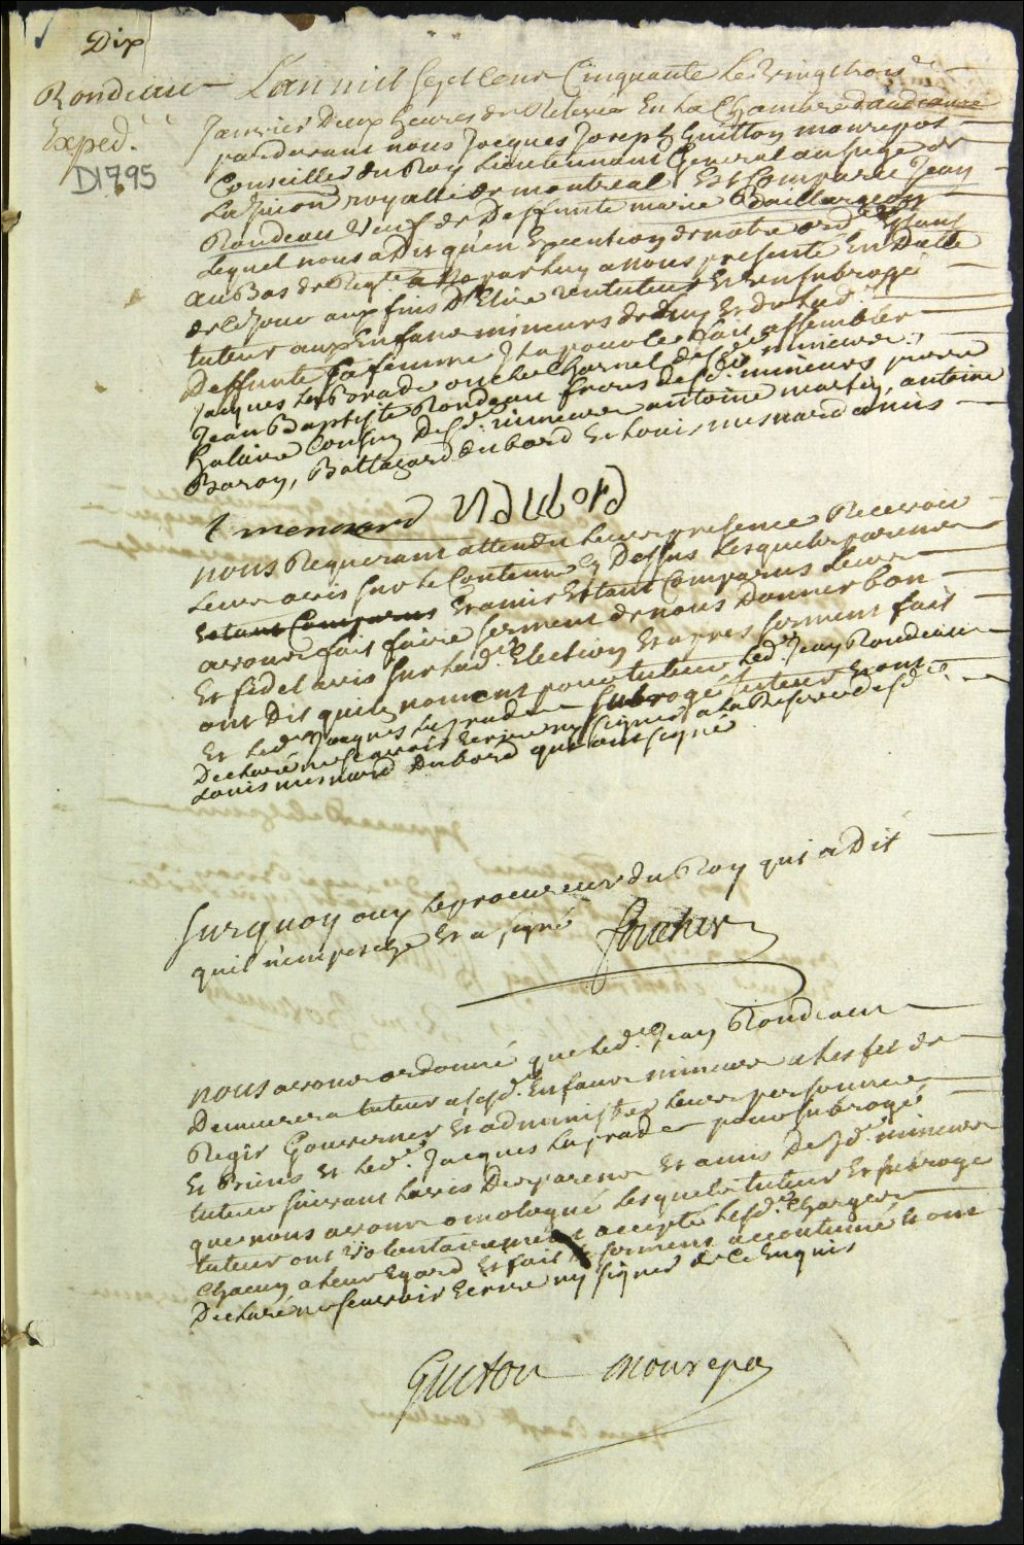 Dix
Rondeau
Exped.
D1795
L'an mil sept cent Cinquante le vingt trois
Janvier Deux heures de Relevée En La Chambre daudiance
pardevant nous Jacques Joseph Guitton monrepos
Conseiller du Roy Lieutennant General au siege de
La Jurion royalle de montreal Est Comparu Jean
Rondeau veuf de Deffunte marie Baillargeon
Lequel nous a Dit qu'en Execution de notre ord.ce Estant
au Bas de Req.te a Nous par Luy a nous presenté En Datte
de ce Jour aux fins D'Elire un tuteur Et un subrogé
tuteur aux Enfans mineurs de Luy Et de lad.
Deffunte sa femme Il a pour ce fait assembler
Jacques Laprade oncle Charnel desd. mineurs
Jean Baptiste Rondeau frere desd. mineurs pierre
halaire Cousin Desd. mineurs antoine martin, antoine
Baron, Baltazard dubord Et Louis mesnard amis
l menard dubord
nous Requerant attendu Leur presence Recevoir
Leurs avis sur le Contenu cy Dessus Lesquels parens
Estant Comparus Et amis Estant Comparus Leur
avons fait faire serment de nous Donner bon
Et fidel avis sur lad. Election Et apres serment fait
ont Dit qu'ils nomment pour tuteur led. Jean Rondeau
Et led. Jacques Laprade subrogé tuteur Et ont
Declaré ne scavoir Ecrire ny signer a la Reserve desd.
Louis mesnard Dubord qui ont signé
Surquoy ouy le procureur du Roy qui a Dit
quil n'empesche Et a signé foucher
nous avons ordonné que led. Jean Rondeau
Demeurera tuteur a sesd. Enfans mineurs a les fet de
Regir Gouverner Et administrer leurs personnes
Et Biens Et led. Jacques Laprade pour subrogé
tuteur suivant Lavis Des parens Et amis Desd. mineurs
que nous avons omologué Lesquels tuteur Et subrogé
tuteur ont volontairement accepté lesd. Charges
Chacun a leur Egard Et fait le serment accoutumé Et ont
Declaré ne scavoir Ecrire ny signer de ce Enquis
Guiton monrepos